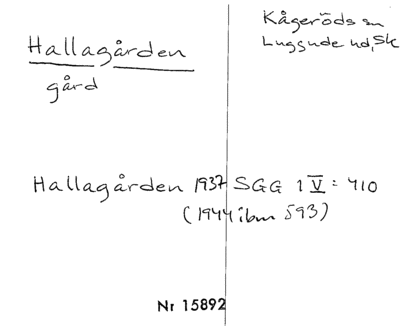 Hallagården
gård
Kågeröds sn
Luggude hd, Sk
Hallagården 1937 SGG 1 V: 410
(1944 ibm 593)
Nr 15892